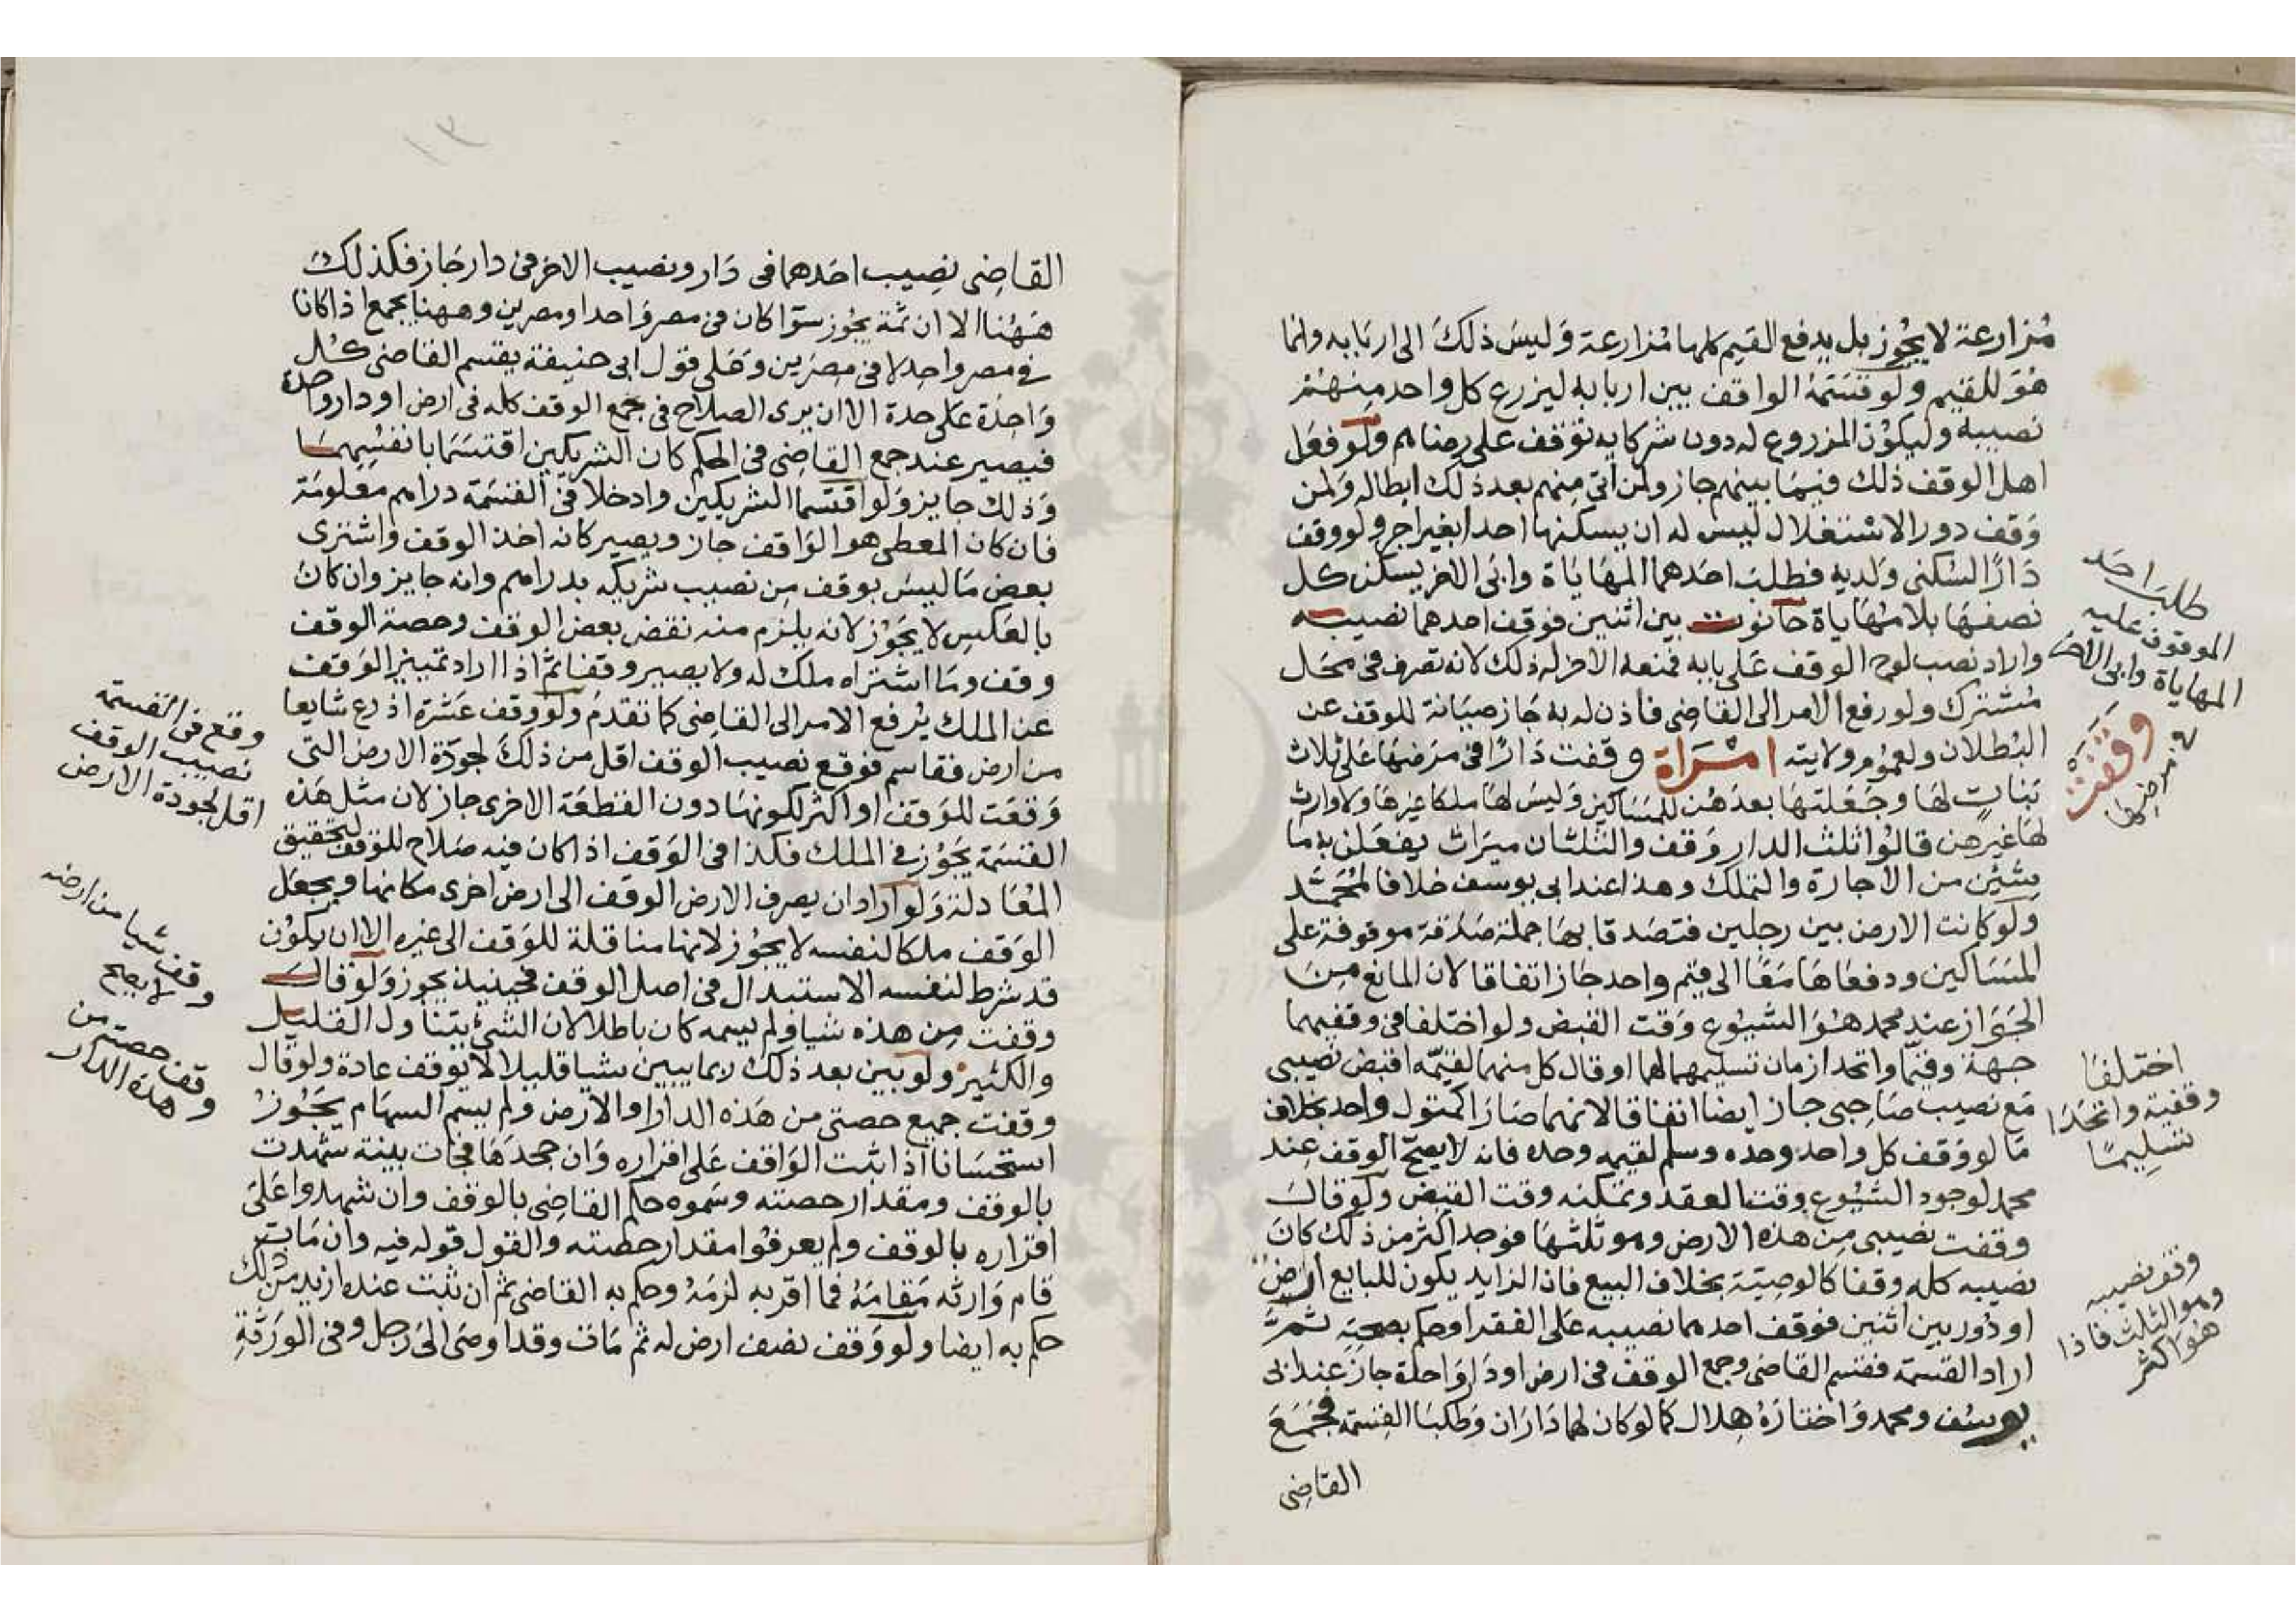 مُزارعة لا يجُوز بل يدفع القيم كلها مُزارعة وَليسَ ذلكَ الى اربَابه وانما
هوَ للقيم ولو قسَمَهُ الواقف بين اربابه ليزرع كل واحد منهُمْ
نصيبه وليكوُن المزروع له دون شركايه توقف على رضاهم ولو فعَل
اهل الوقف ذلك فيمَا بينهم جاز ولمن ابَى منهم بعد ذلك ابطاله وَلمن
وَقف دور الاستغلال ليس له ان يسكنها احدا بغير اجر ولو وقف
دَارًا لسُكنى وَلديه فطلبَ احَدهما المهَايَاة وابَى الاخر يسكن كل
نصفهَا بلا مهَاياة حَانوت بين اثنين فوقف احدهما نصيبه
واراد نصب لوح الوقف عَلى بابه فمنعه الاخر له ذلك لانه تصرف في محَل
مُشترك ولو رفع الامر الى القاضِى فأذن له به جَاز صيَانة للوقف عن
البُطلان ولعمُوم ولايته امْرَاة وقفت دَارًا في مَرَضهَا عَلى ثلاث
بَنات لهَا وجَعَلتهَا بعدهُن للمسَاكين وَليسَ لهَا ملكا غيرهَا ولا وارث
لهَا غيرهن قالوُا ثلث الدار وَقف والثلثان ميَراث يفعَلن به مَا
يشئن من الاجارة والتملك وهذا عند ابى يوسف خلافا لمُحَمَّد
ولو كانت الارض بين رجلين فتصَدقا بهَا جملة صَدَقة موقوفة على
المسَاكين ودفعَاهَا مَعًا الى قيم واحد جَاز اتفاقا لان المانع مِنَ
الجَوَاز عند محمد هُوَ الشيُوع وَقت القبض ولو اختلفا في وقفيهما
جهة وقيّما واتحد زمان تسليمهما لهما او قال كل منهما لقيّمه اقبض نصيبى
مَع نصيب صَاحِبى جاز ايضا اتفاقا لانهما صَارَا كمتول واحد بخلاف
مَا لو وَقف كل واحد وحده وسلم لقيمه وحده فانه لا يصحّ الوقف عِند
محمد لوجود الشيُوع وقت العقد وتمكنه وقت القبض ولو قال
وقفت نصيبى مِن هذه الارض وهو ثلثهَا فوجد اكثر من ذلك كانَ
نصيبه كله وقفا كالوصيّة بخلاف البيع فان الزايد يكون للبايع ارض
او دُور بين اثنين فوقف احدهما نصيبه عَلى الفقرا وحكم بصحته ثمَّ
اراد القسمة فقسم القاضى وجمع الوقف في ارض او دَار وَاحدة جاز عند ابى
يوسُف ومحمد وَاختارَهُ هِلال كما لو كان لهما دَارَان وَطلبَا القِسمة فجَمَعَ
القاضِى
طلبَ احَد
الموقوف عليه
المهاياة وابى الاخر
وقفت
في مرضها
اختلفَا
وقفية واتحَدَا
تسليمًا
وقف نصيبه
وهو الثلث فاذا
هُو اكثر
القاضِى نصِيب احَدهما في دَار ونصيب الاخر في دار جَاز فكذلكَ
هَهُنا الا ان ثمة يجُوز سوَا كان في مصر وَاحد او مصرين وههنا يجمع اذا كانا
في مصر واحد لا في مصرَين وَعَلى قول ابى حنيفة يقسم القاضى كل
وَاحِدَة عَلى حِدة الا ان يرى الصلاح في جمع الوقف كله في ارض او دار واحدة
فيصير عند جمع القاضِى في الحكم كان الشريكين اقتسَمَا بانفسِهمَا
وَذلك جايز وَلو اقتسما الشريكين وادخلا في القسمَة دراهم معلومَة
فان كان المعطى هو الوَاقف جاز ويصير كانه اخذ الوقف واشترى
بعض مَا ليسَ بوقف مِن نصيب شريكه بدراهم وانه جايز وان كان
بالعَكس لا يجَوُز لانه يلزم منه نقض بعض الوقف وحصة الوقف
وقف وَمَا اشتراه ملك له ولا يصير وقفا ثمَّ اذا اراد تمييز الوَقف
عن الملك يُرفع الامر الى القاضِى كما تقدمَ ولو وَقف عَشرَة اذرع شايعا
من ارض فقاسم فوقع نصيب الوقف اقل من ذلكَ لجودَة الارض التى
وَقعَت للوَقف او اكثر لكونهَا دون القطعَة الاخرى جاز لان مثل هَذه
القسمَة يجُوز في الملك فكذا في الوَقف اذا كان فيه صَلاح للوقف لتحقيق
المعَادلة وَلو ارَاد ان يصرف الارض الوقف الى ارض اخرى مكانها ويجعَل
الوَقف ملكا لنفسه لا يجُوز لانها مناقلة للوَقف الى غيره الا ان يكوُن
قد شرط لنفسه الاستبدال في اصل الوقف فحينيذ يجوز وَلو قال
وقفت مِن هذه شيا ولم يسمه كان باطلا لان الشئ يتناول القليل
والكثير ولو بين بعد ذلك ربما يبين شيا قليلا لا يوقف عادة ولو قال
وقفت جميع حصتى من هَذه الدار او الارض ولم يسم السهَام يجَوُز
استحسَانا اذا ثبت الوَاقف عَلى اقراره وَان جحدَهَا فجَات بينة شهدت
بالوقف ومقدار حصته وسَموه حكم القاضِى بالوقف وان شهدوا عَلى
اقراره بالوقف ولم يعرفوُا مقدار حصته والقول قوله فيه وان مَات
قام وَارثه مَقامَهُ فما اقر به لزمَهُ وحكم به القاضى ثم ان ثبت عنده ازيد من ذلك
حكم به ايضا ولو وَقف نصف ارض له ثم مَات وقد اوصَى الى رَجل وفي الورَثةِ
وقع في القسمة
نصيب الوقف
اقل لجودة الارض
وقف شيا من ارضه
لا يصح
وقف حصته من
هذه الدار
١٣